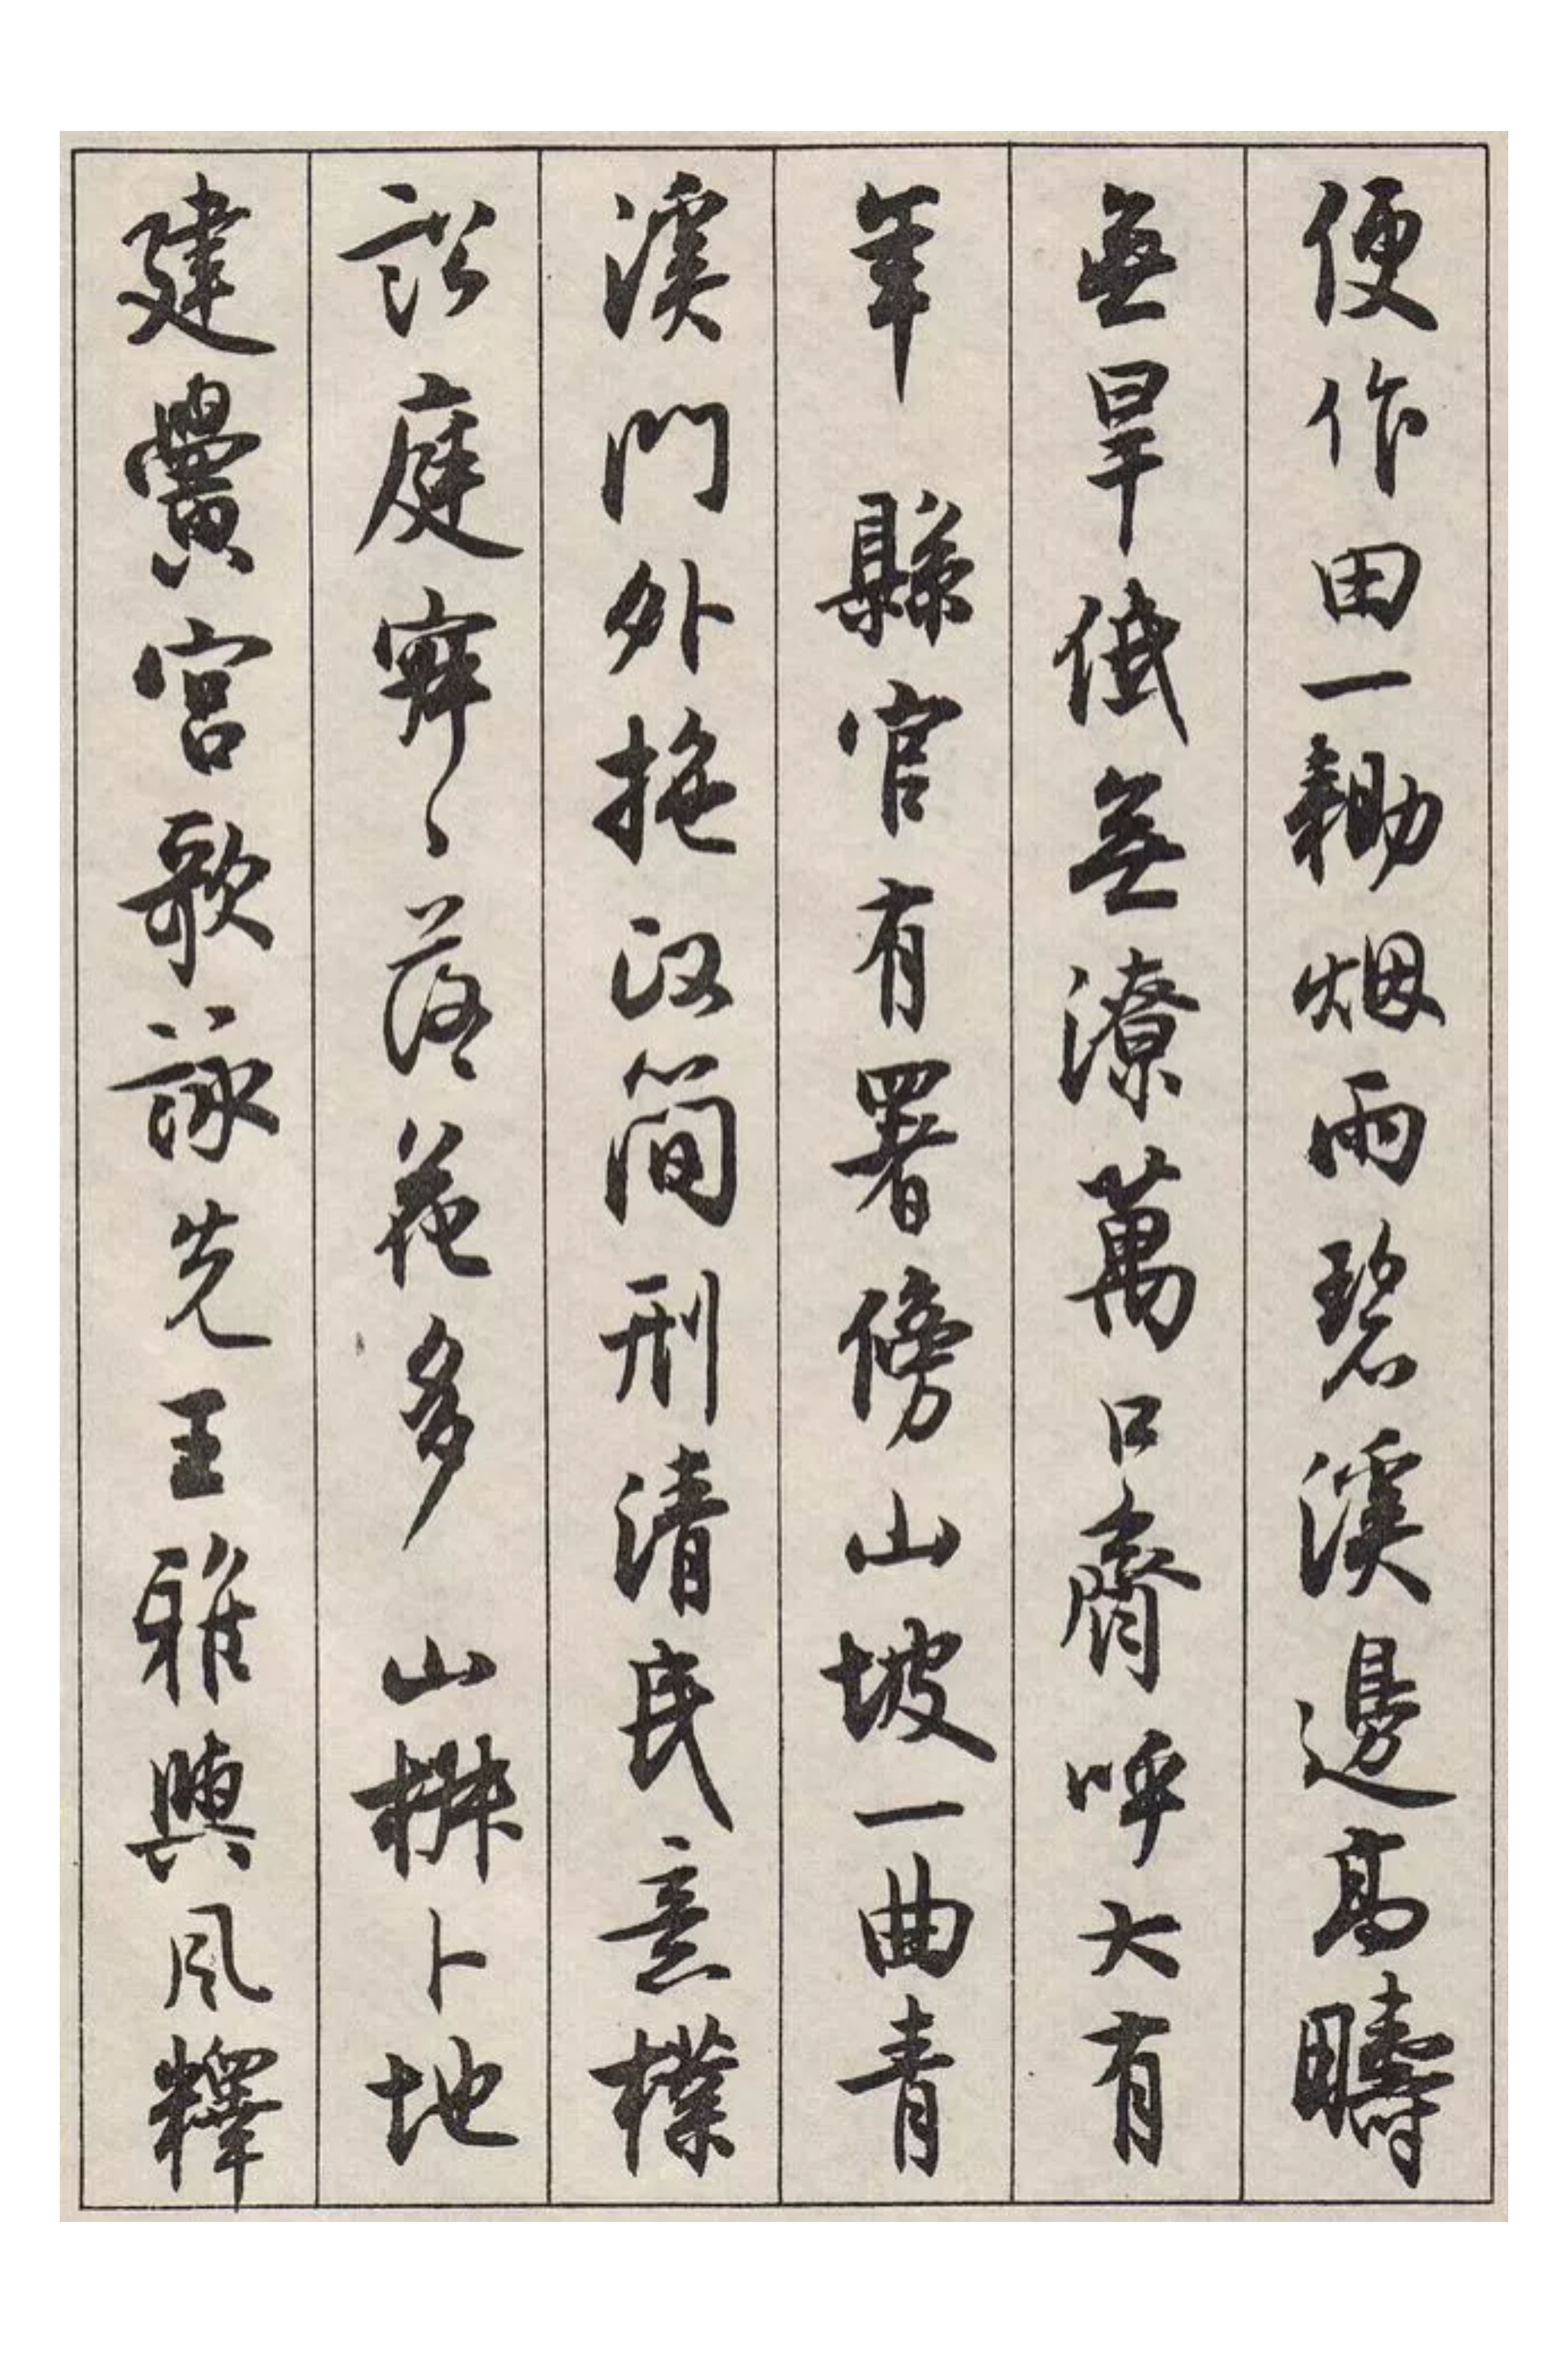 便作田一耡烟雨碧溪邊高疇
無旱低無潦萬口齊呼大有
年　縣官有署傍山坡一曲青
溪門外拖政簡刑清民意樸
訟庭寂〻落花多　山椒卜地
建黌宮歌詠先王雅與風釋